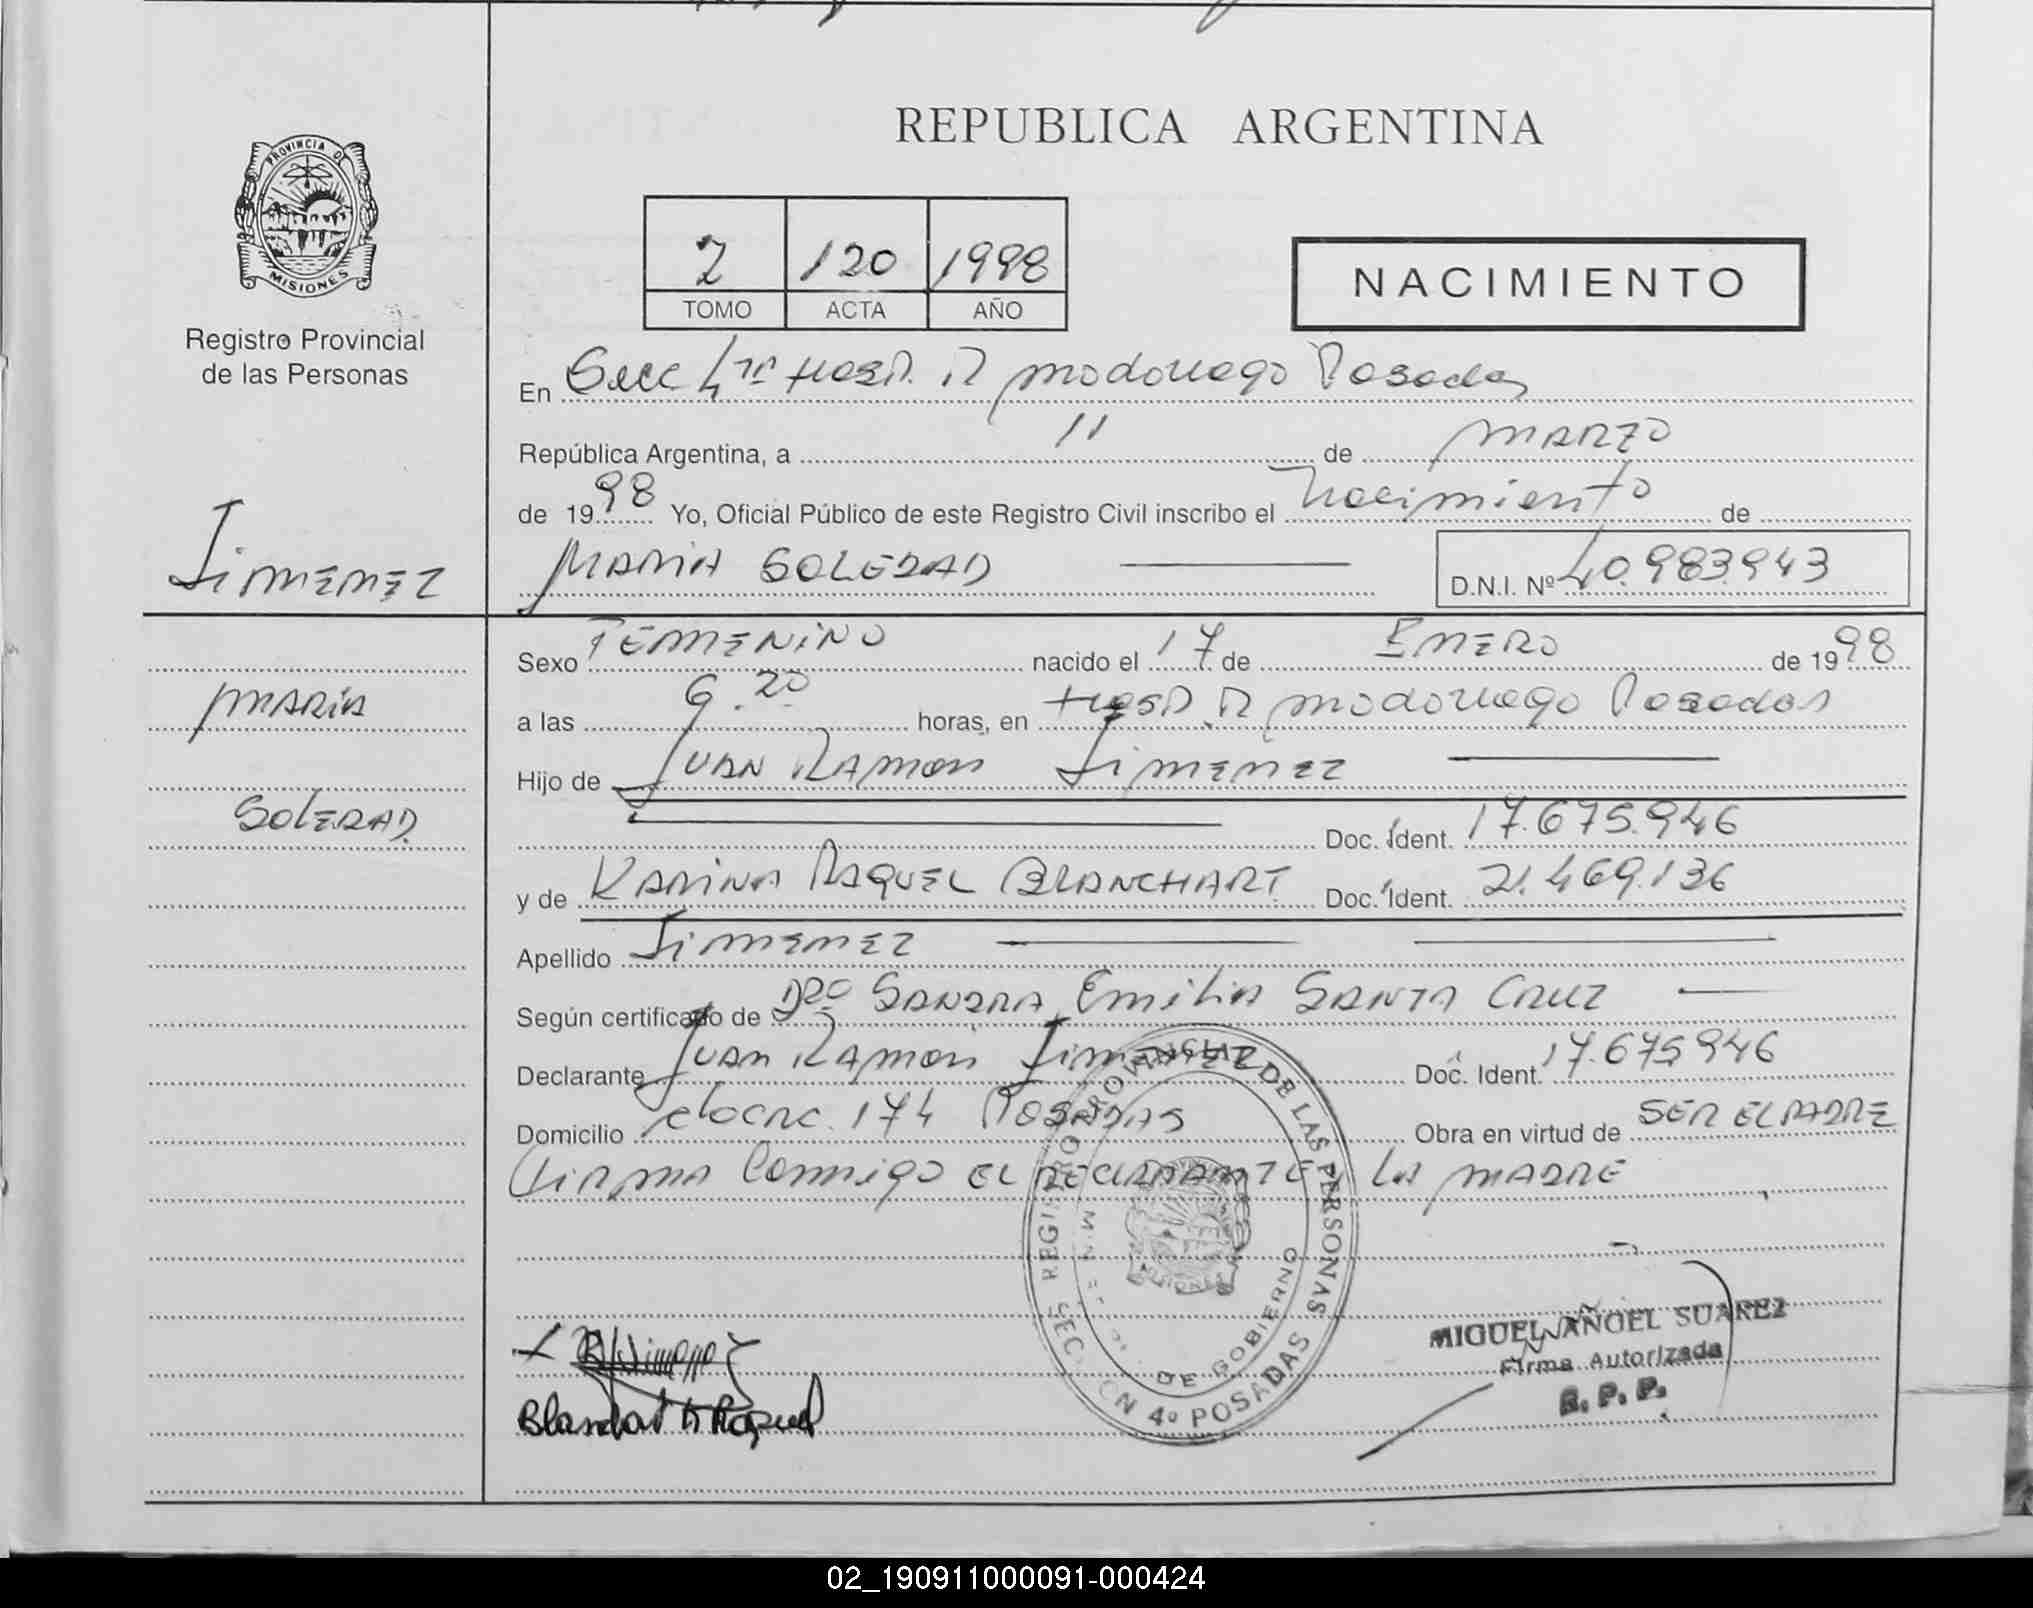 REPUBLICA ARGENTINA
PROVINCIA DE
MISIONES
Registro Provincial
de las Personas
2 120 1998
TOMO ACTA AÑO
NACIMIENTO
En Secc 4ta Hosp. R Madariaga Posadas
República Argentina, a 11 de MARZO
de 1998 Yo, Oficial Público de este Registro Civil inscribo el Nacimiento de
JIMENEZ
MARIA SOLEDAD D.N.I. Nº 40.983.943
Sexo FEMENINO nacido el 17 de ENERO de 1998
MARIA
a las 9.20 horas, en Hosp. R Madariaga Posadas
Hijo de JUAN RAMON JIMENEZ
SOLEDAD
Doc. Ident. 17.675.946
y de KARINA RAQUEL BLANCHART Doc. Ident. 21.469.136
Apellido JIMENEZ
Según certificado de Dra SANDRA Emilia SANTA CRUZ
Declarante JUAN RAMON JIMENEZ Doc. Ident. 17.675946
Domicilio 174 POSADAS Obra en virtud de SER EL PADRE
Firma Conmigo EL DECLARANTE y LA MADRE
REGISTRO PROVINCIAL DE LAS PERSONAS
DE GOBIERNO
SECCION 4º POSADAS
MISIONES
MIGUEL ANGEL SUAREZ
Firma Autorizada
R. P. P.
Blanchart K Raquel
02_190911000091-000424